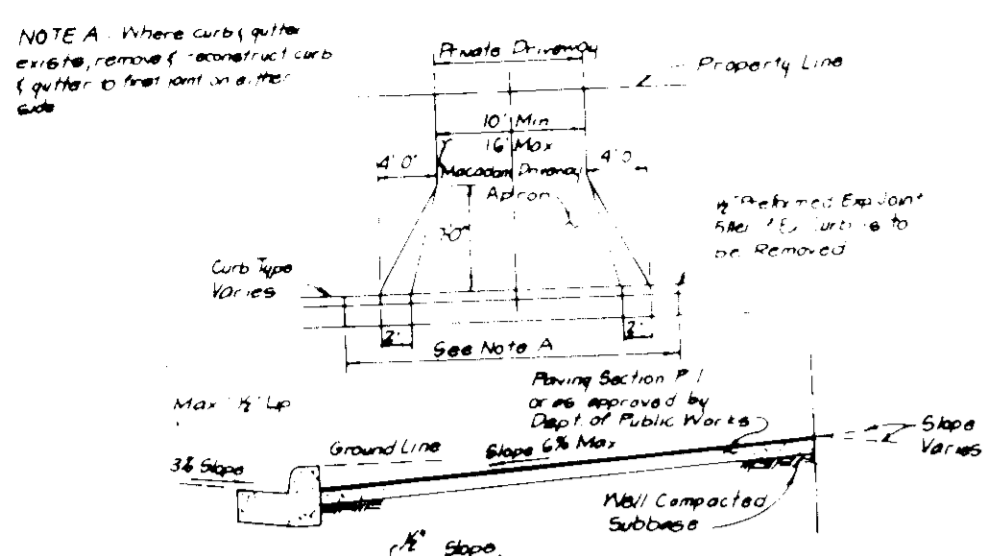 NOTE A. Where curb & gutter
exists, remove & reconstruct curb
& gutter to first joint on either
side
Private Driveway
Property Line
10' Min
16' Max
4' 0"
4' 0
Macadam Driveway
Apron
3'0"
½" Preformed Exp Joint
to
be Removed
Curb Type
Varies
2'
2'
See Note A
Paving Section P 1
or as approved by
Dept. of Public Works
Max ½" Lip
Slope
Varies
Ground Line
Slope 6% Max
Slope
Well Compacted
Subbase
½" Slope